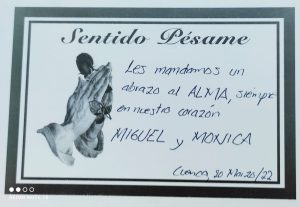 Sentido Pésame
Les mandamos un
abrazo al ALMA, siempre
en nuestro corazón
MIGUEL y MONICA
Cuenca 30 Marzo/22